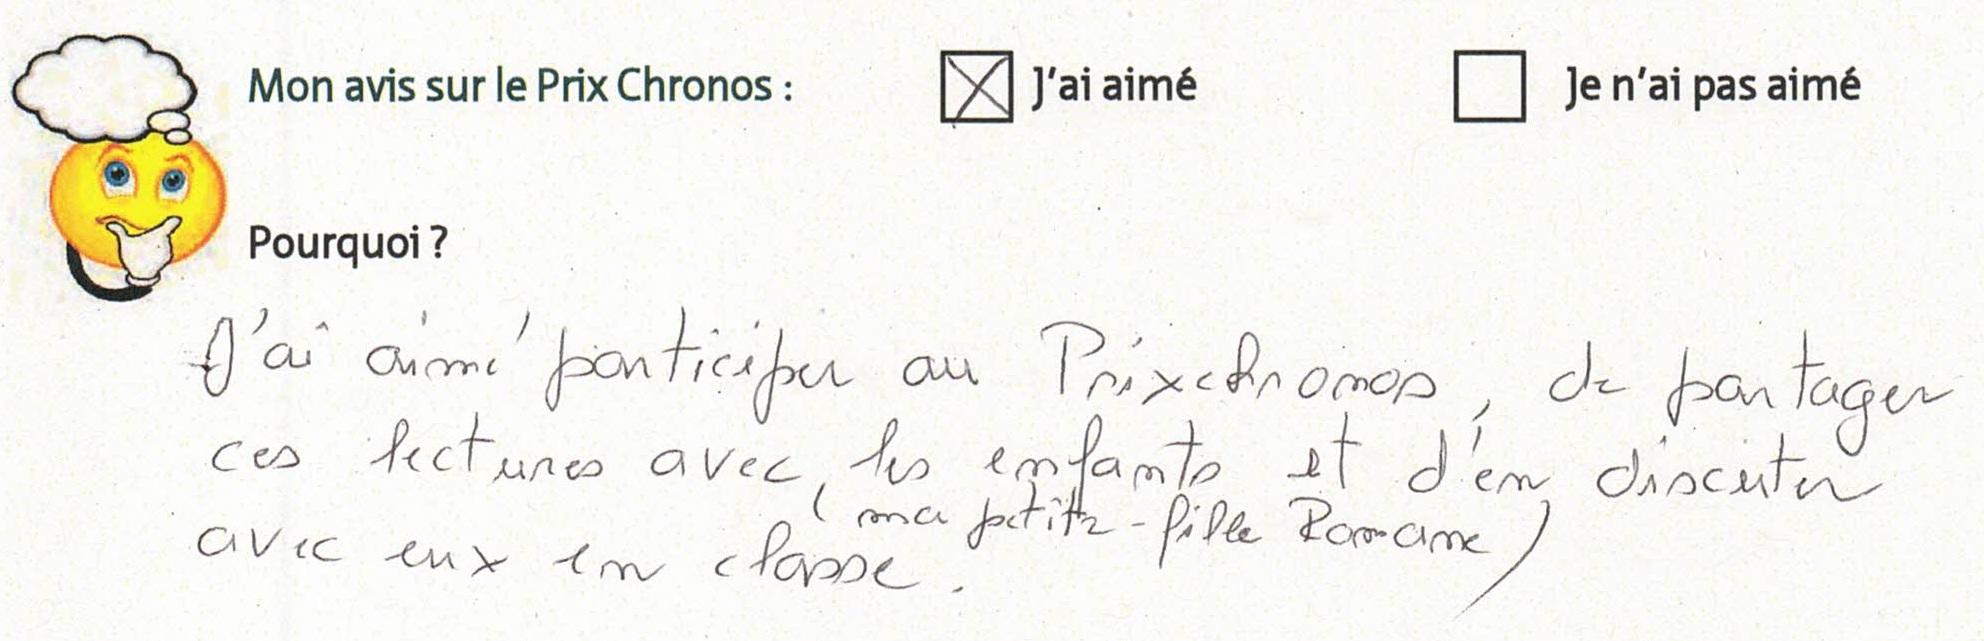 Mon avis sur le Prix Chronos : J'ai aimé Je n'ai pas aimé
Pourquoi ?
J'ai aimé participer au Prixchronos, de partager
ces lectures avec les enfants et d'en discuter
(ma petite-fille Romane)
avec eux en classe.